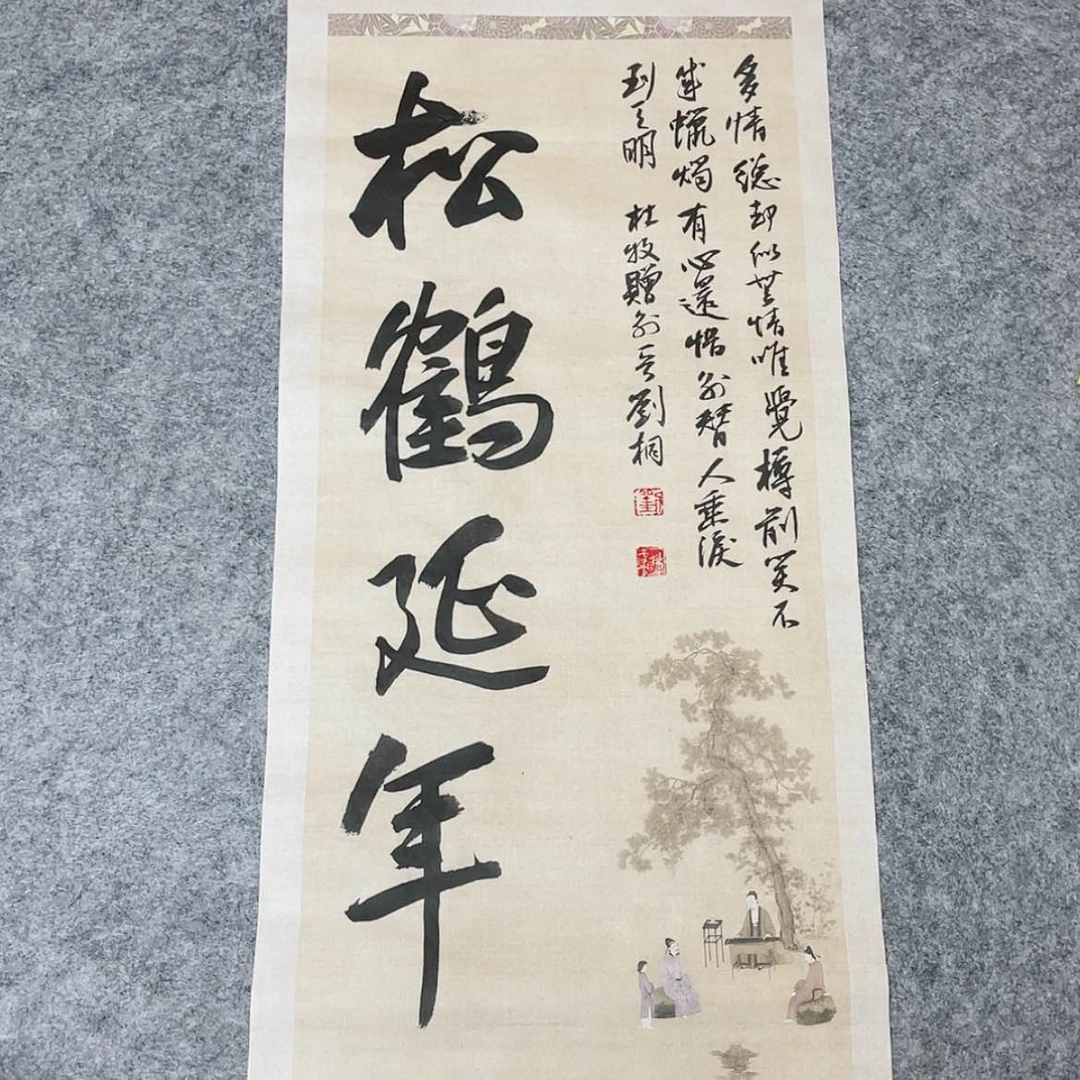 多情總却似無情唯覺樽前笑不
成蠟燭有心還惜別替人垂淚
到天明 杜牧贈別 劉桐
松鶴延年